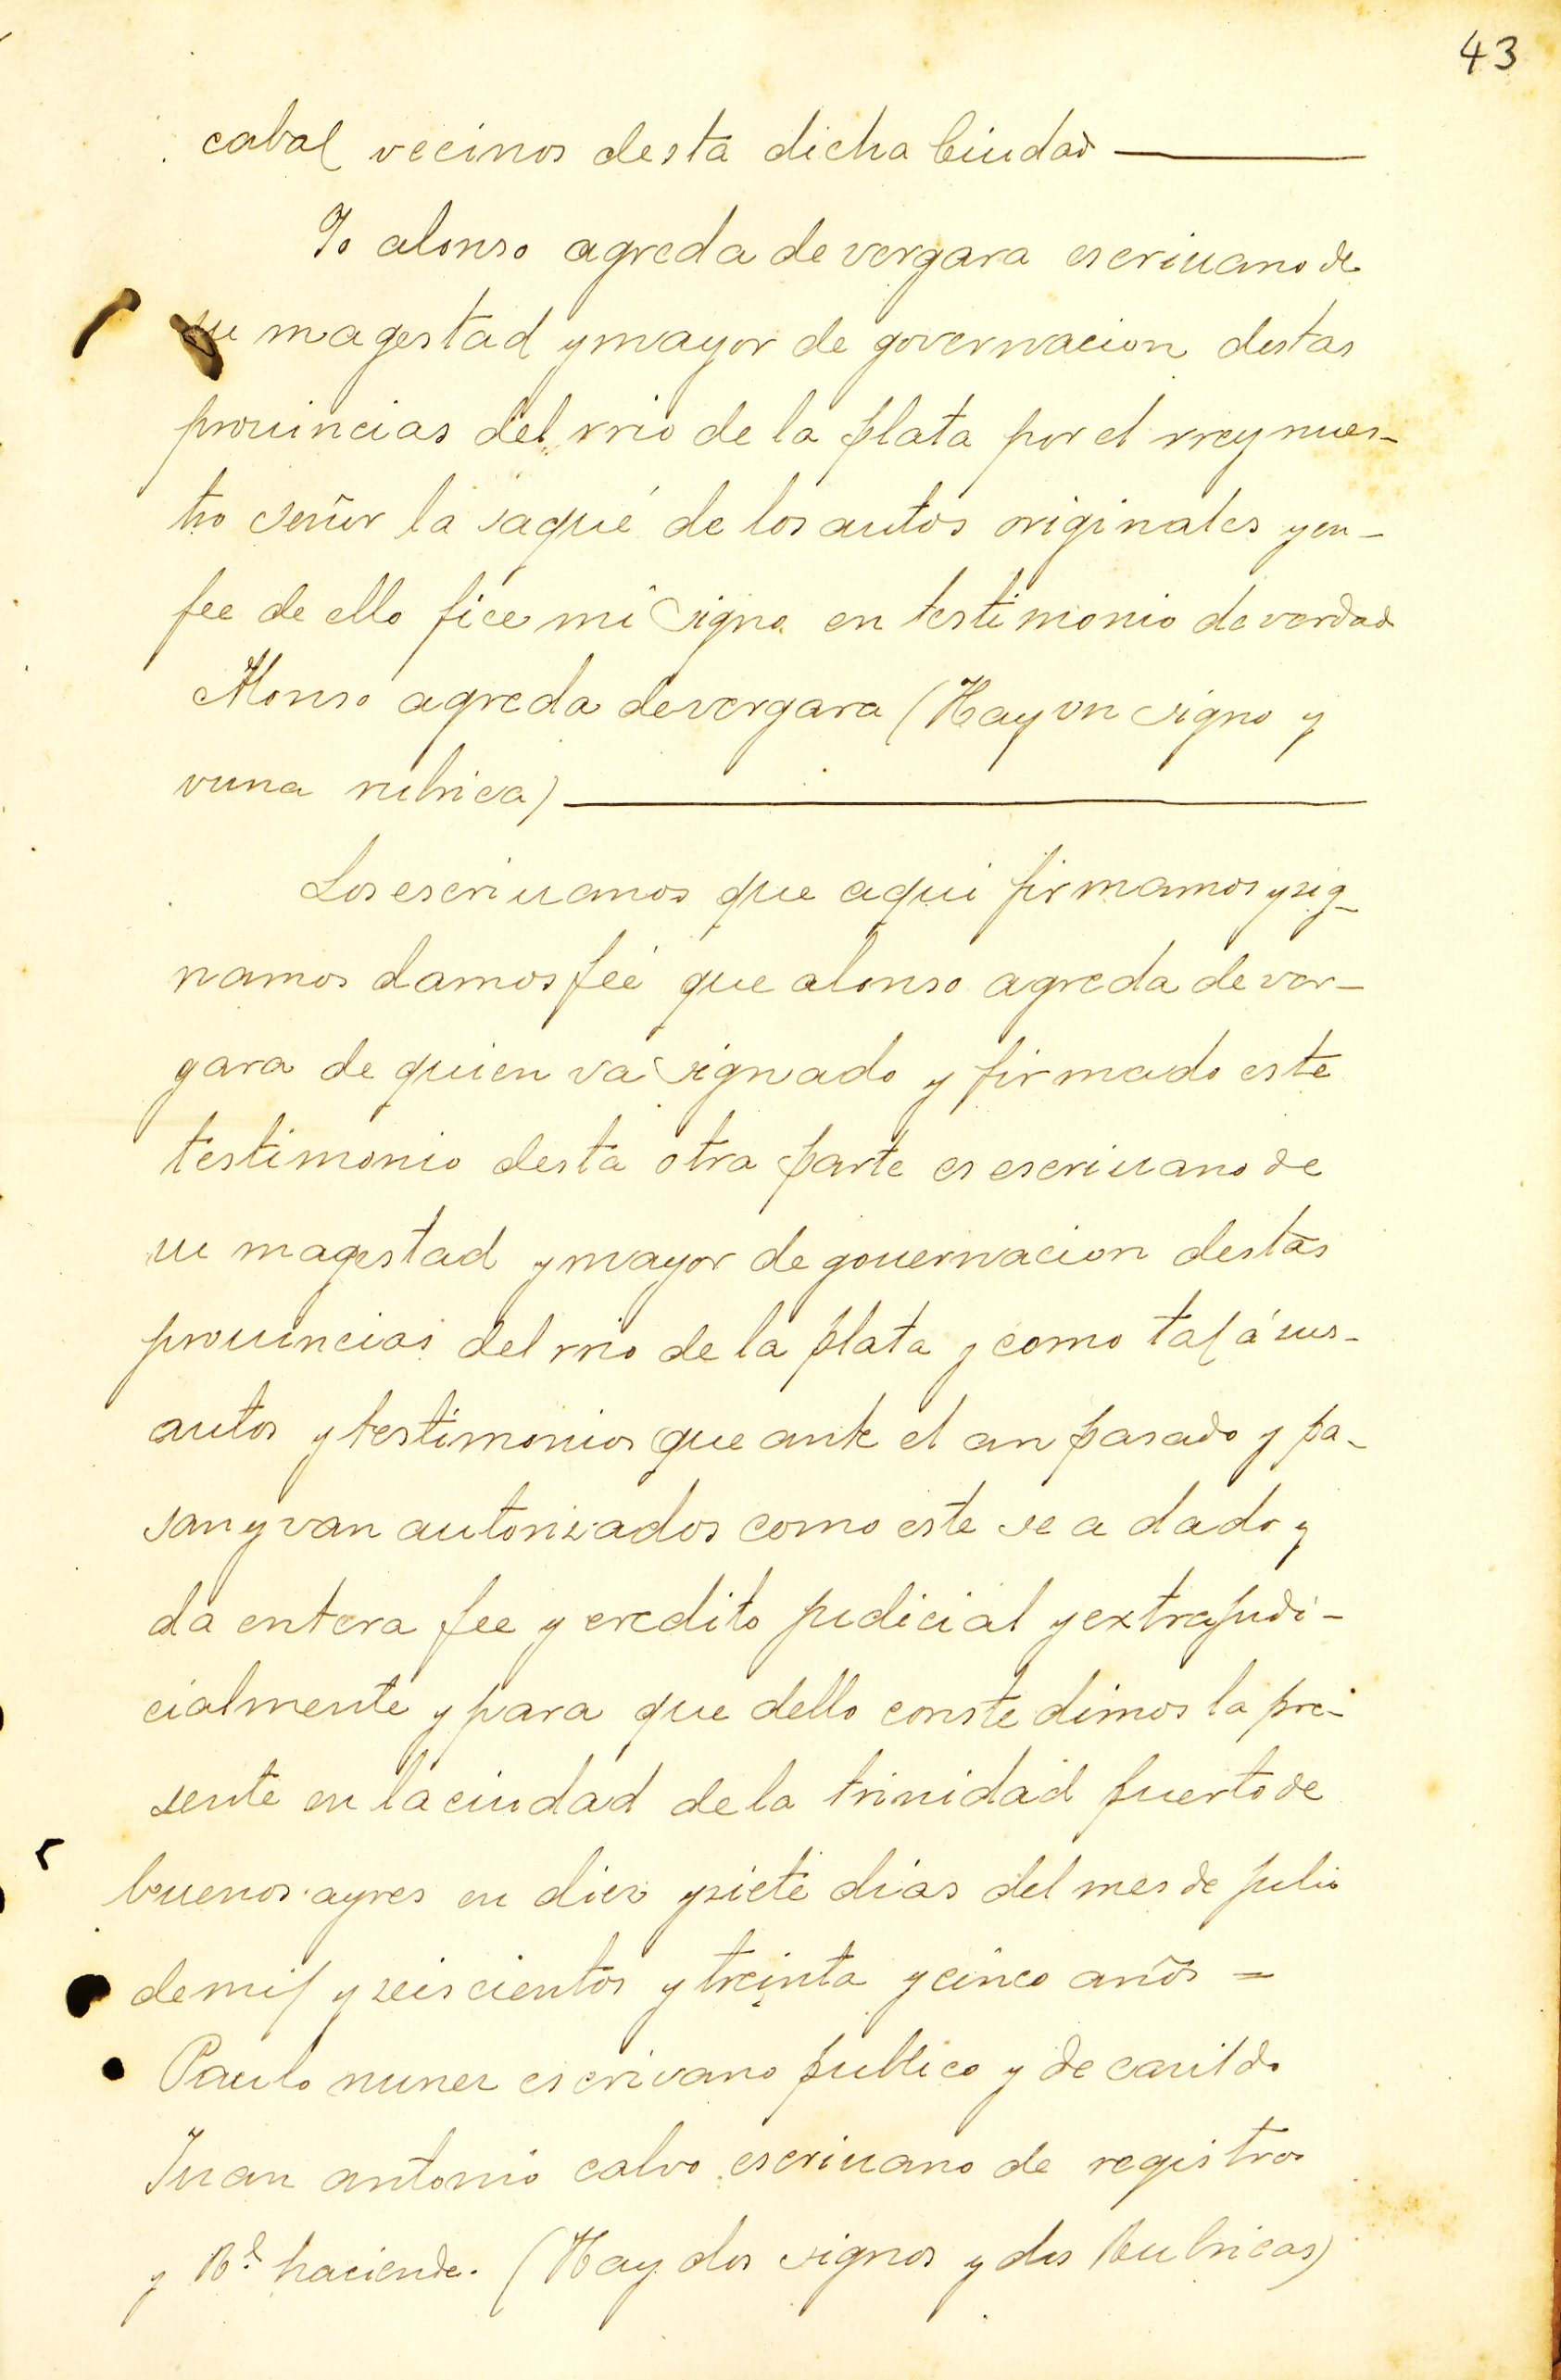 43
cabal vecinos desta dicha Ciudad
Yo alonso agreda de vergara escriuano de
su magestad y mayor de governacion destas
prouincias del rrio de la plata por el rrey nues-
tro señor la saqué de los autos originales y en-
fee de ello fice mi signo en testimonio de verdad
Alonso agreda de vergara (Hay vn signo y
vuna rubrica)
Los escriuanos que aqui firmamos y sig-
namos damos feé que alonso agreda de ver-
gara de quien va signado y firmado este
testimonio desta otra parte es escriuano de
su magestad y mayor de gouernacion destas
prouincias del rrio de la plata y como tal á sus-
autos y testimonios que ante el an pasado y pa-
san y van autorizados como este se a dado y
da entera fee y credito judicial y extrajudi-
cialmente y para que dello conste dimos la pre-
sente en la ciudad de la trinidad puerto de
buenos ayres en diez y siete dias del mes de julio
de mil y seiscientos y treinta y cinco años =
Paulo nunez escrivano publico y de cauildo
Juan antonio calvo escriuano de registros
y Rl. hacienda. (Hay dos signos y dos Rubricas)